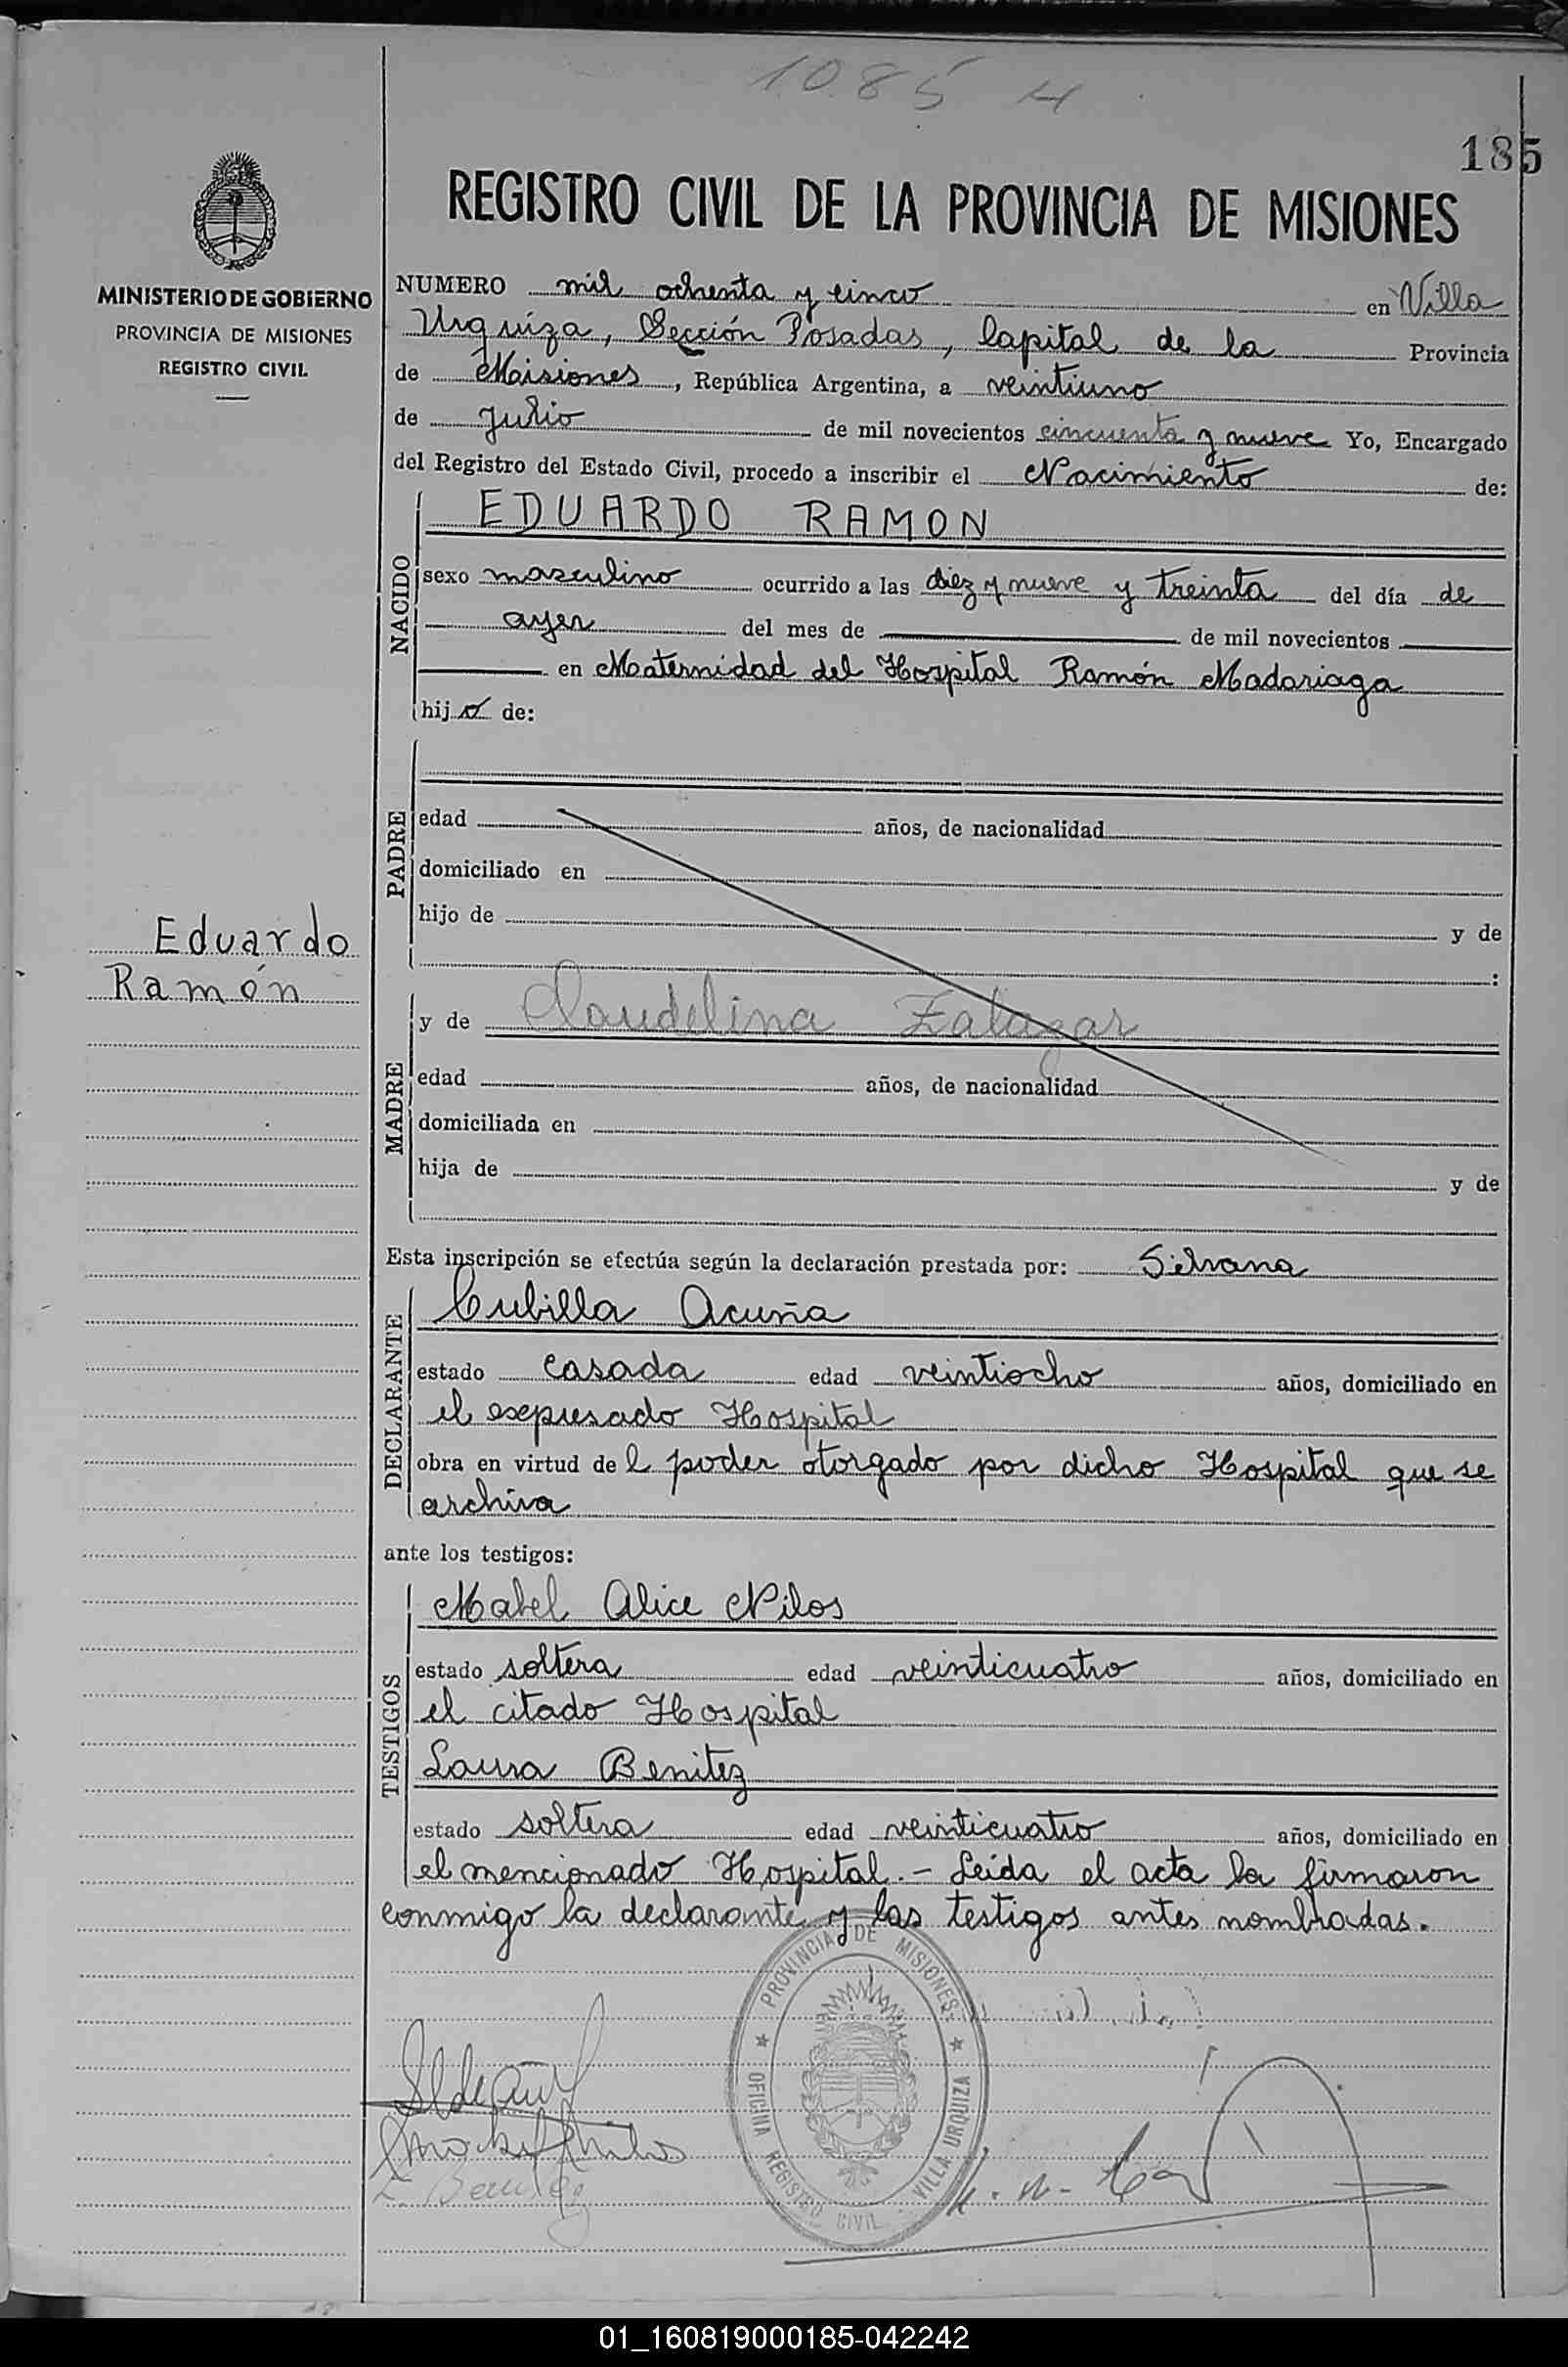 1085 H
185
REGISTRO CIVIL DE LA PROVINCIA DE MISIONES
MINISTERIO DE GOBIERNO
PROVINCIA DE MISIONES
REGISTRO CIVIL
NUMERO mil ochenta y cinco en Villa
Urquiza, Sección Posadas, Capital de la Provincia
de Misiones, República Argentina, a veintiuno
de Julio de mil novecientos cincuenta y nueve Yo, Encargado
del Registro del Estado Civil, procedo a inscribir el Nacimiento de:
NACIDO
EDUARDO RAMON
sexo masculino ocurrido a las diez y nueve y treinta del día de
ayer del mes de de mil novecientos
en Maternidad del Hospital Ramón Madariaga
hijo de:
PADRE
edad años, de nacionalidad
domiciliado en
hijo de y de
:
Eduardo
Ramón
MADRE
y de Claudelina Zalazar
edad años, de nacionalidad
domiciliada en
hija de y de
Esta inscripción se efectúa según la declaración prestada por: Silvana
DECLARANTE
Cubilla Acuña
estado casada edad veintiocho años, domiciliado en
el expresado Hospital
obra en virtud del poder otorgado por dicho Hospital que se
archiva
ante los testigos:
TESTIGOS
Mabel Alice Nilos
estado soltera edad veinticuatro años, domiciliado en
el citado Hospital
Laura Benitez
estado soltera edad veinticuatro años, domiciliado en
el mencionado Hospital.- Leida el acta la firmaron
conmigo la declarante y las testigos antes nombradas.
PROVINCIA DE MISIONES
OFICINA REGISTRO CIVIL VILLA URQUIZA
L. Benitez
01_160819000185-042242